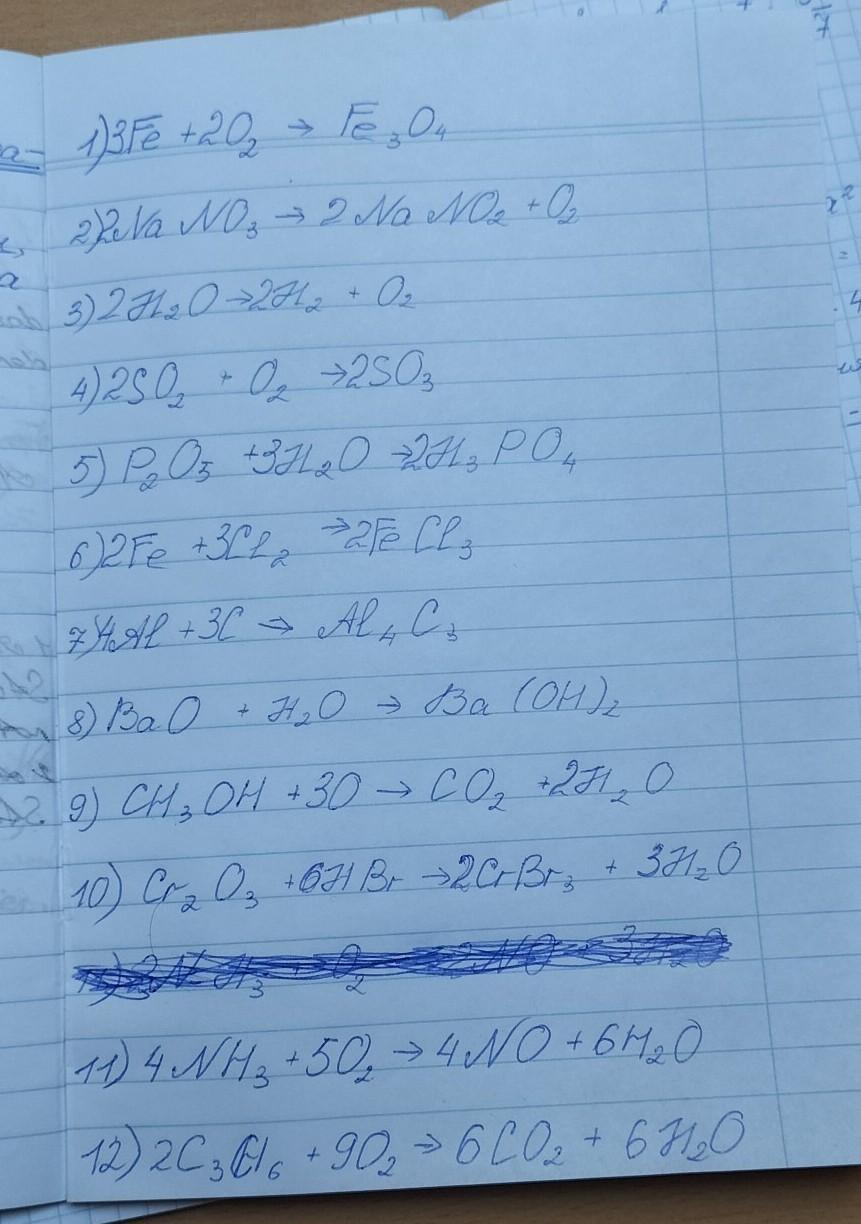 1) 3Fe + 2O₂ → Fe₃O₄
2) 2NaNO₃ → 2NaNO₂ + O₂
3) 2H₂O → 2H₂ + O₂
4) 2SO₂ + O₂ → 2SO₃
5) P₂O₅ + 3H₂O → 2H₃PO₄
6) 2Fe + 3Cl₂ → 2FeCl₃
7) 4Al + 3C → Al₄C₃
8) BaO + H₂O → Ba(OH)₂
9) CH₃OH + 3O → CO₂ + 2H₂O
10) Cr₂O₃ + 6HBr → 2CrBr₃ + 3H₂O
11) 4NH₃ + 5O₂ → 4NO + 6H₂O
12) 2C₃H₆ + 9O₂ → 6CO₂ + 6H₂O